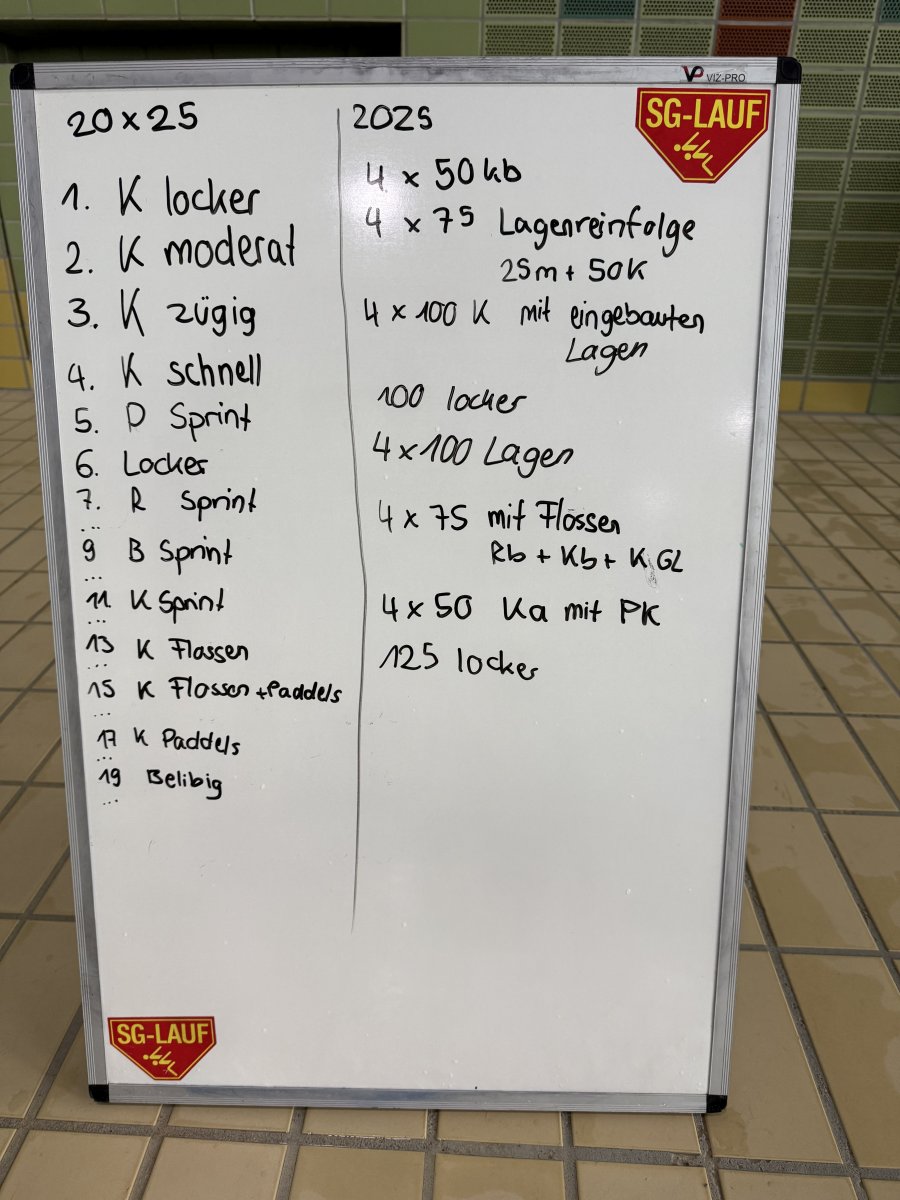 VP VIZ-PRO
SG-LAUF
20 x 25
1. K locker
2. K moderat
3. K zügig
4. K schnell
5. D Sprint
6. Locker
7. R Sprint
...
9 B Sprint
...
11 K Sprint
...
13 K Flossen
...
15 K Flossen + Paddels
...
17 K Paddels
...
19 Belibig
...
2025
4 x 50 kb
4 x 75 Lagenreinfolge
25m + 50K
4 x 100 K mit eingebauten
Lagen
100 locker
4 x 100 Lagen
4 x 75 mit Flossen
Rb + Kb + K GL
4 x 50 Ka mit PK
125 locker
SG-LAUF